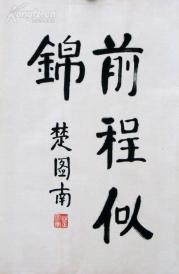 前程似
錦
楚图南